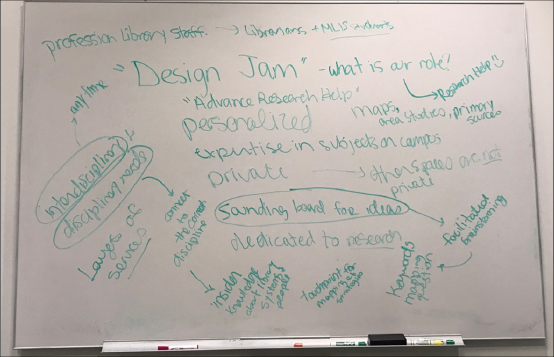 profession Library Staff. → Librarians + MLIS students
"Design Jam" - what is our role?
anytime
Research Help
"Advance Research Help"
personalized
maps,
area studies, primary
sources
expertise in subjects on campus
private → other spaces are not
private
interdisciplinary +
disciplinary needs
Layers of
services
connect
to
the correct
discipline
Sounding board for ideas
dedicated to research
facilitated
brainstorming
insider
knowledge
about library
systems +
people
touchpoint
mapping for
Keywords
mapping
question